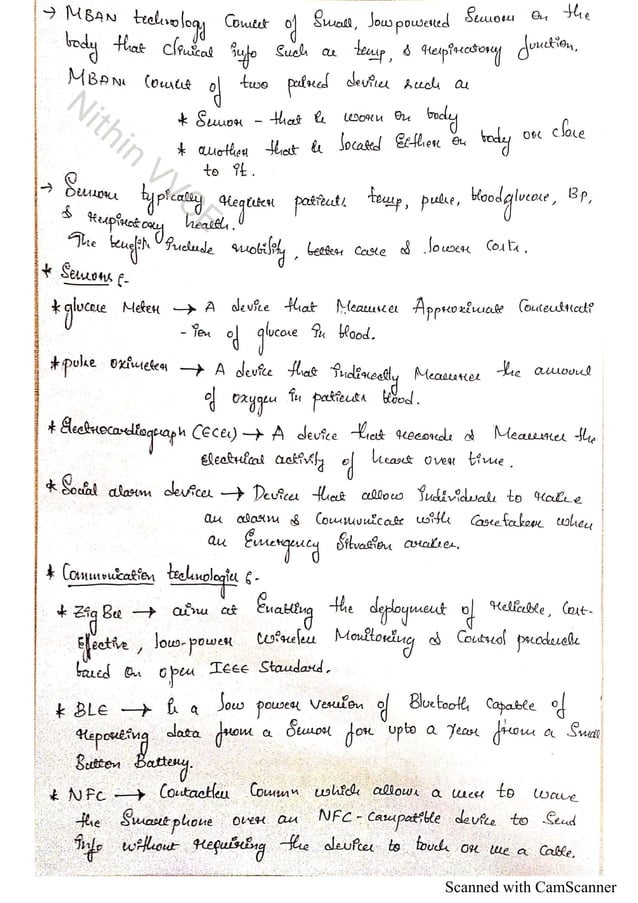 → MBAN technology Consist of Small, low powered Sensors on the
body that Clinical info Such as temp, & respiratory function.
MBANs Consist of two paired devices such as
* Sensor - that is worn on body
* another that is located Either on body or close
to it.
→ Sensors typically requires patients temp, pulse, bloodglucose, BP,
& respiratory health.
The benefits include mobility, better care & lower costs.
* Sensors :-
* glucose Meter → A device that Measures Approximate Concentrati
-ion of glucose in blood.
* pulse oximeter → A device that indirectly Measures the amount
of oxygen in patients blood.
* Electrocardiograph (ECG) → A device that records & Measures the
Electrical activity of heart over time.
* Social alarm devices → Devices that allow individuals to raise
an alarm & Communicate with Caretaker when
an Emergency Situation arises.
* Communication technologies :-
* ZigBee → aims at Enabling the deployment of reliable, Cost-
Effective, low-power wireless Monitoring & Control products
based on open IEEE Standard.
* BLE → is a low power version of Bluetooth Capable of
reporting data from a Sensor for upto a year from a Small
Button Battery.
* NFC → Contactless Commn which allows a user to wave
the Smartphone over an NFC-Compatible device to Send
info without requiring the devices to touch or use a cable.
Nithin VVCE
Scanned with CamScanner